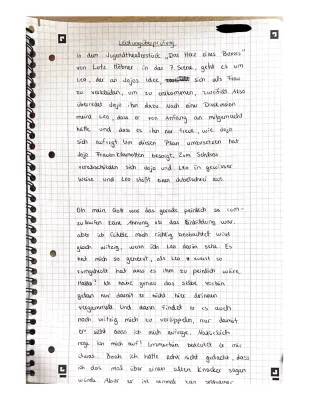 Leistungsüberprüfung
In dem Jugendtheaterstück „Das Herz eines Boxers"
von Lutz Hübner in der 7. Szene, geht es um
Leo, der an Jojos Idee, sich als Frau
zu verkleiden, um zu entkommen, zweifelt. Also
überredet Jojo ihn dazu. Nach einer Diskussion
meint Leo, dass er von Anfang an mitgemacht
hätte und dass es ihn nur freut, wie Jojo
sich aufregt. Um diesen Plan umzusetzen hat
Jojo Frauenklamotten besorgt. Zum Schluss
verabschieden sich Jojo und Leo in gewisser
Weise und Leo stößt einen Jubelschrei aus.
Oh mein Gott war das gerade peinlich so rum-
zulaufen keine Ahnung ob das Einbildung war,
aber ich fühlte mich richtig beobachtet wird
gleich witzig, wenn ich Leo darin sehe. Es
hat mich so genervt, als Leo so
rumgeheult hat dass es ihm zu peinlich wäre.
Hallo? Ich habe genau das selbe vorhin
getan nur damit er nicht hier drinnen
vergammelt und dann findet er es auch
noch witzig mich zu veräppeln, nur damit
er sieht dass ich mich aufrege. Natürlich
rege ich mich auf! Immerhin bedeutet er mir
etwas. Boah ich hätte echt nicht gedacht, dass
ich das mal über einen alten Knacker sagen
würde. Aber er ist